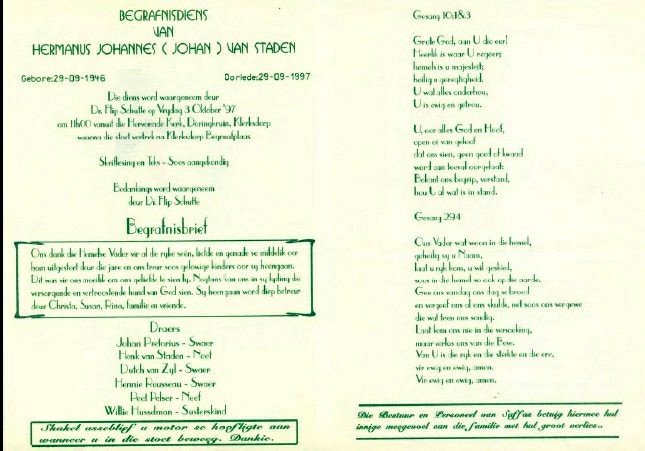 BEGRAFNISDIENS
VAN
HERMANUS JOHANNES ( JOHAN ) VAN STADEN
Gebore:29-09-1946 Oorlede:29-09-1997
Die diens word waargeneem deur
Dr. Flip Schutte op Vrydag 3 Oktober '97
om 11h00 vanuit die Hervormde Kerk, Doringkruin, Klerksdorp
waarna die stoet vertrek na Klerksdorp Begraafplaas.
Skriflesing en Teks - Soos aangekondig
Bedankings word waargeneem
deur Dr. Flip Schutte
Begrafnisbrief
Ons dank die Hemelse Vader vir al die ryke seën, liefde en genade so middelik oor
hom uitgestort deur die jare en ons treur soos gelowige kinders oor sy heengaan.
Dit was vir ons moeilik om ons geliefde te sien ly. Nogtans kon ons in sy lyding die
versorgende en vertroostende hand van God sien. Sy heengaan word diep betreur
deur Christa, Susan, Rina, familie en vriende.
Draers
Johan Pretorius - Swaer
Henk van Staden - Neef
Dutch van Zyl - Swaer
Hennie Rousseau - Swaer
Peet Pelser - Neef
Willie Husselman - Susterskind
Skakel asseblief u motor se hoofligte aan
wanneer u in die stoet beweeg. Dankie.
Gesang 10:1&3
Grote God, aan U die eer!
Heerlik is waar U regeer;
hemels is u majesteit;
heilig u geregtigheid.
U wat alles onderhou,
U is ewig en getrou.
U, oor alles God en Hoof,
open oë van geloof
dat ons sien, geen goed of kwaad
word aan toeval oorgelaat:
Bokant ons begrip, verstand,
hou U al wat is in stand.
Gesang 294
Ons Vader wat woon in die hemel,
geheilig sy u Naam,
laat u ryk kom, u wil geskied,
soos in die hemel so ook op die aarde.
Gee ons vandag ons dag se brood
en vergeef ons al ons skulde, net soos ons vergewe
die wat teen ons sondig.
Laat kom ons nie in die versoeking,
maar verlos ons van die Bose.
Van U is die ryk en die sterkte en die eer,
vir ewig en ewig, amen.
Vir ewig en ewig, amen.
Die Bestuur en Personeel van Soffas betuig hiermee hul
innige meegevoel aan die familie met hul groot verlies..